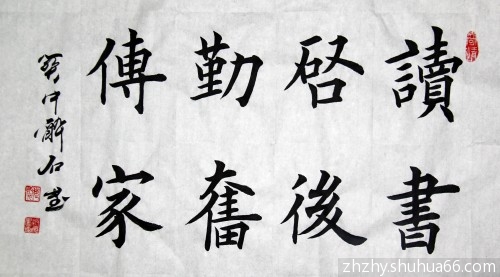 讀書
啓後
勤奮
傳家
zhzhy.shuhua66.com